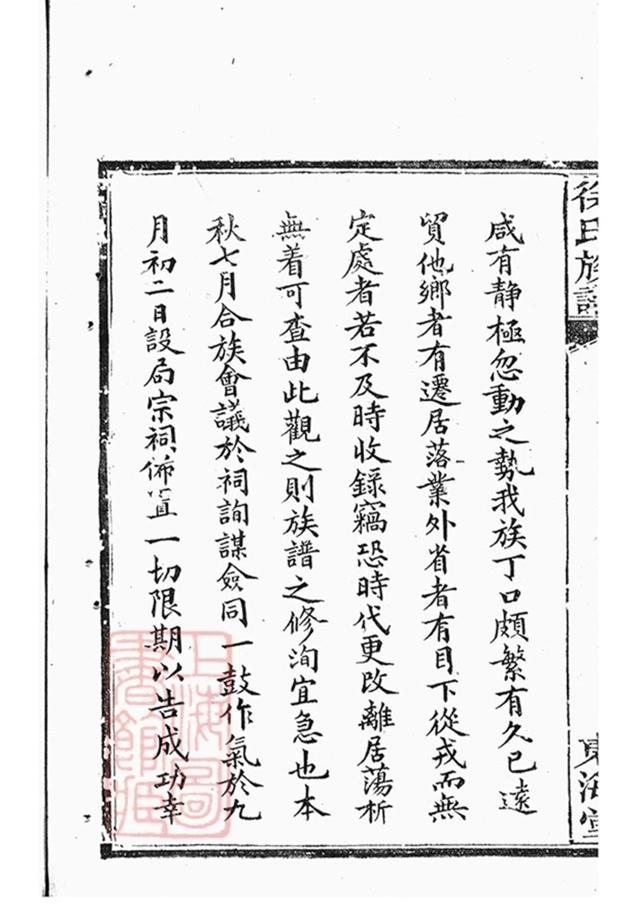 徐氏族譜
東海堂
咸有静極忽動之勢我族丁口頗繁有久已遠
貿他鄉者有遷居落業外省者有目下從戎而無
定處者若不及時收錄竊恐時代更改離居蕩析
無着可查由此觀之則族譜之修洵宜急也本
秋七月合族會議於祠詢謀僉同一鼓作氣於九
月初二日設局宗祠佈置一切限期以告成功幸
上海圖
書館藏